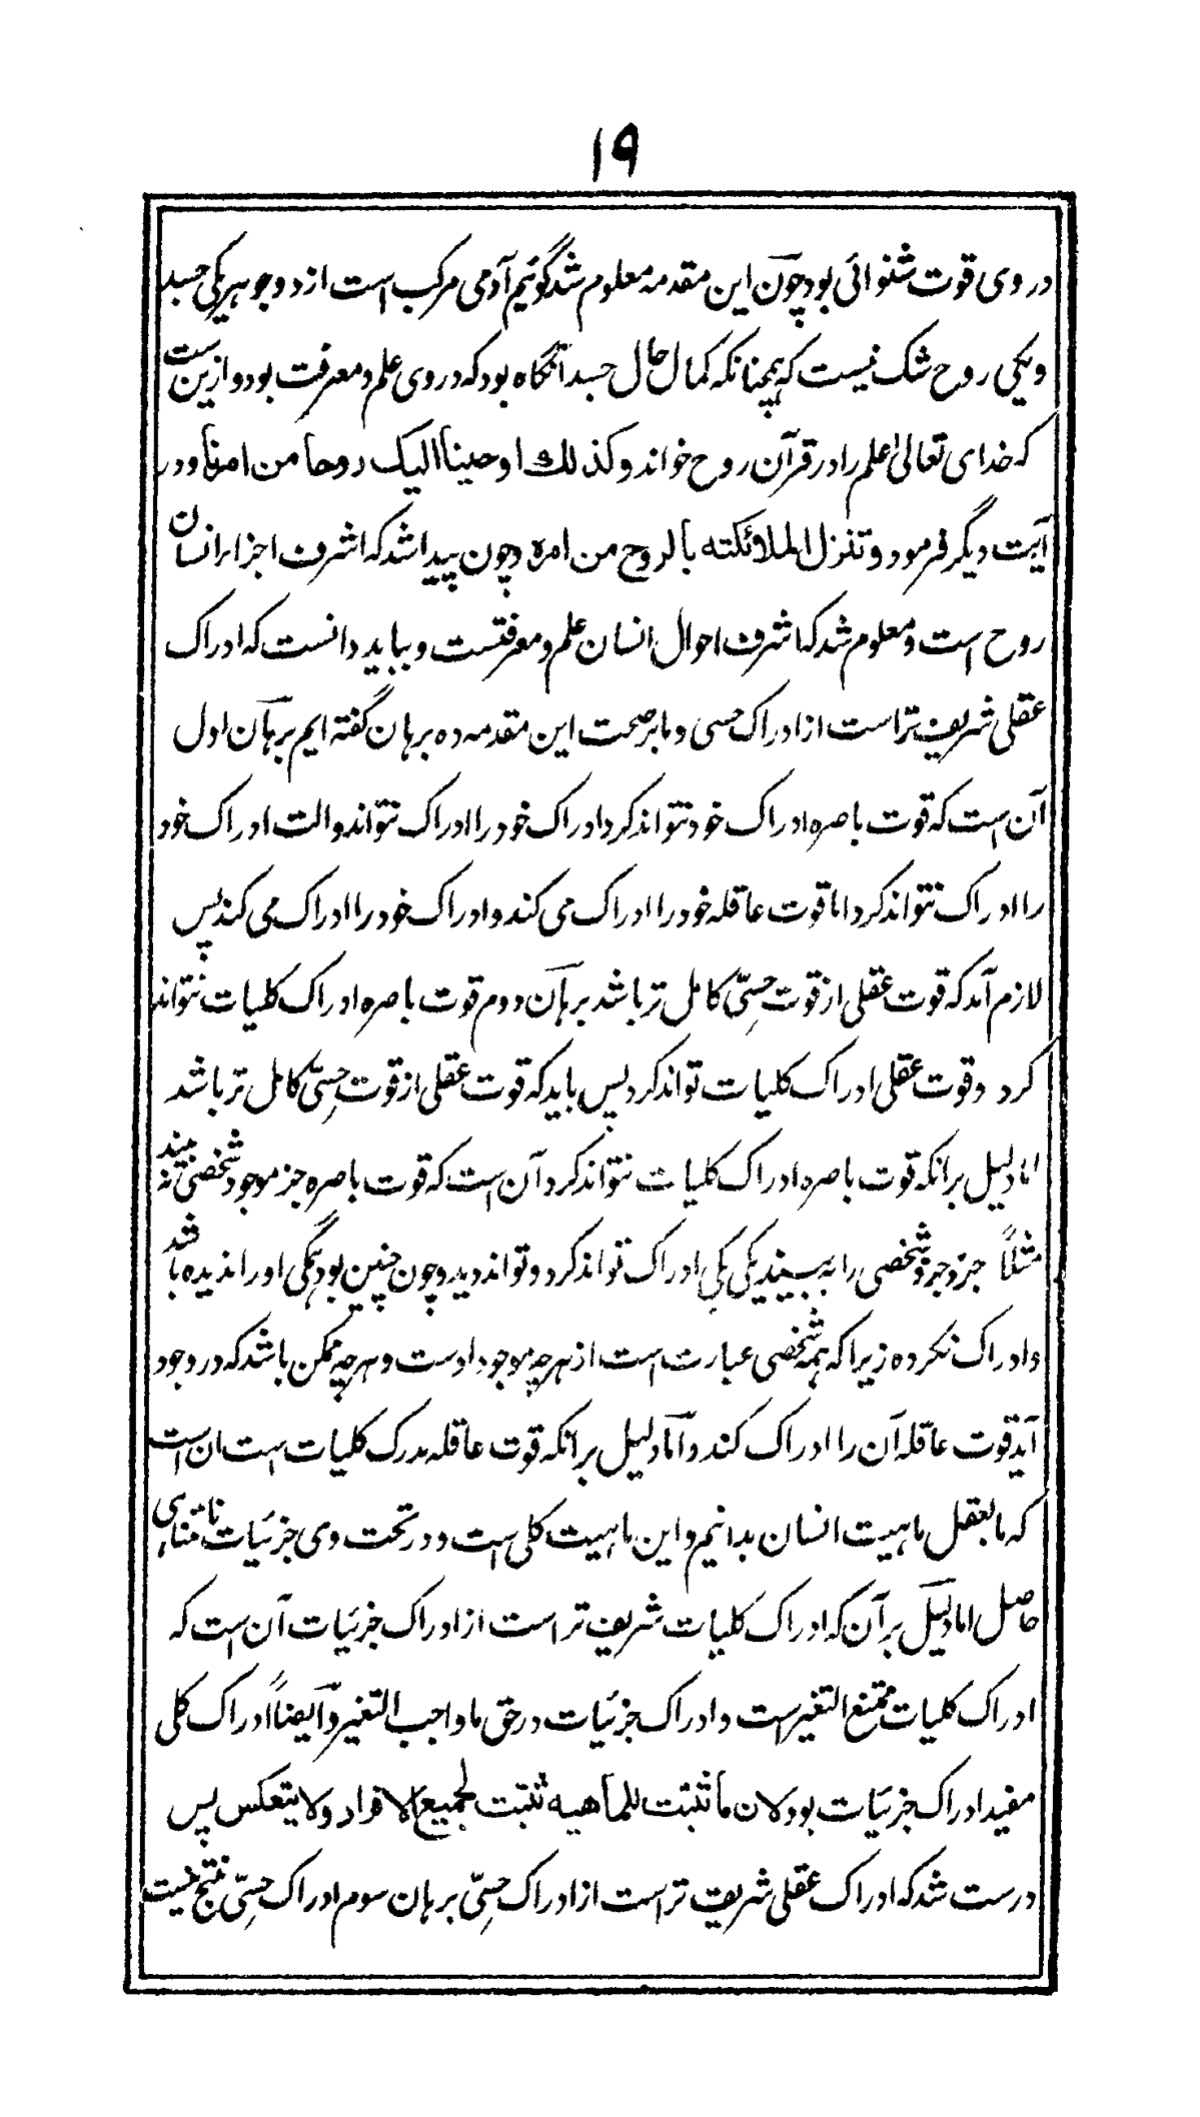 ۱۹
در وی قوت شنوائی بود چون این مقدمه معلوم شد گوئیم آدمی مرکب است از دو جوهر یکی جسد
ویکی روح شک نیست که همچنانکه کمال حال جسد آنگاه بود که در وی علم و معرفت بود و ازین است
که خدای تعالی علم را در قرآن روح خواند و کذلك اوحینا الیک روحا من امرنا و در
آیت دیگر فرمود و تنزل الملائکته بالروح من امره و چون پیدا شد که اشرف اجزاء انسان
روح است و معلوم شد که اشرف احوال انسان علم و معرفتست و بباید دانست که ادراک
عقلی شریف تر است از ادراک حسی و ما بر صحت این مقدمه ده برهان گفته ایم برهان اول
آن است که قوت باصره ادراک خود نتواند کرد ادراک خود را ادراک نتواند و الت ادراک خود
را ادراک نتواند کرد اما قوت عاقله خود را ادراک می کند و ادراک خود را ادراک می کند پس
لازم آمد که قوت عقلی از قوت حسّی کامل تر باشد برهان دوم قوت باصره ادراک کلیات نتواند
کرد و قوت عقلی ادراک کلیات تواند کرد پس باید که قوت عقلی از قوت حسّی کامل تر باشد
اما دلیل برانکه قوت باصره ادراک کلیات نتواند کرد آن است که قوت باصره جز موجود شخصی نه بیند
مثلاً جز وجود شخصی را به بیند یکی یکی ادراک تواند کرد و تواند دید و چون چنین بود همگی او را ندیده باشد
و ادراک نکرده زیرا که همه شخصی عبارت است از هرچه موجود اوست و هرچه ممکن باشد که در وجود
آید قوت عاقله آن را ادراک کند و اما دلیل برانکه قوت عاقله مدرک کلیات است ان است
که ما بعقل ماهیت انسان بدانیم و این ماهیت کلی است و در تحت وی جزئیات نا متناهی
حاصل اما دلیل بر آن که ادراک کلیات شریف تر است از ادراک جزئیات آن است که
ادراک کلیات ممتنع التغیر است و ادراک جزئیات در حق ما واجب التغیر و ایضاً ادراک کلی
مفید ادراک جزئیات بود لان ما ثبتت للماهیه ثبتت لجمیع الافراد ولا یتعکس پس
درست شد که ادراک عقلی شریف تر است از ادراک حسّی برهان سوم ادراک حسّی منتج نیست